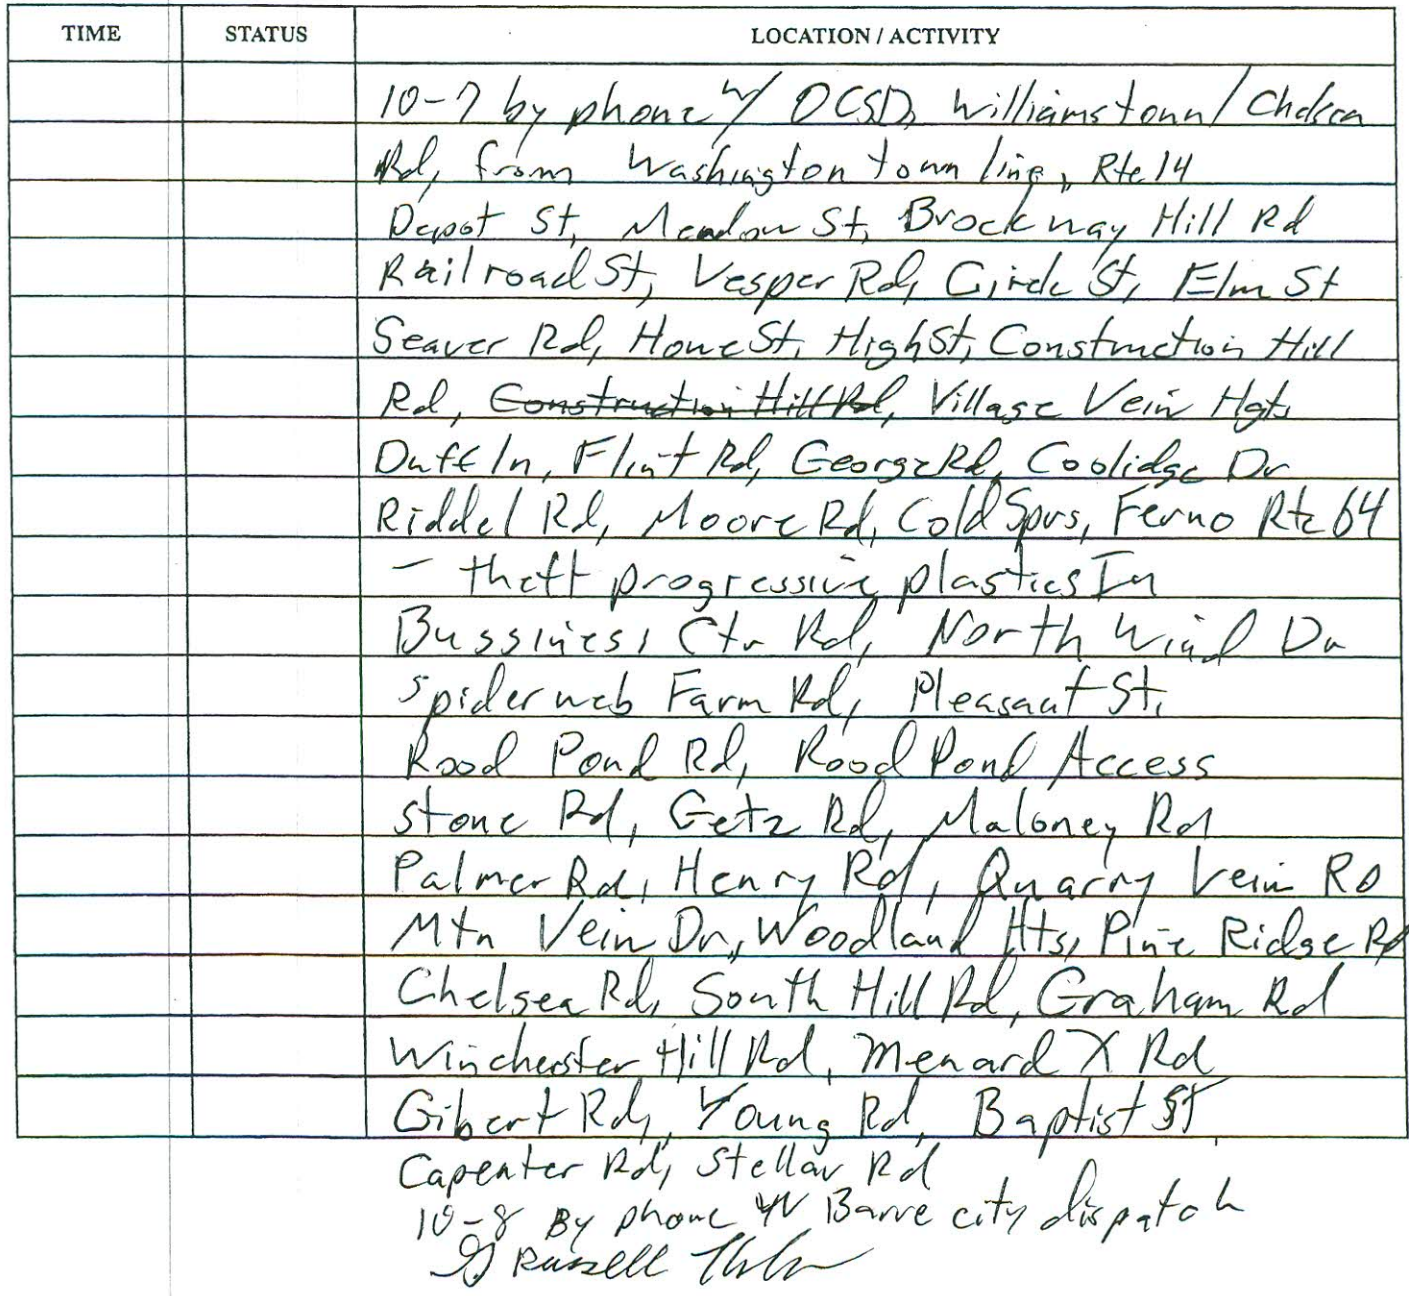 TIME STATUS LOCATION / ACTIVITY
10-7 by phone w/ OCSD, Williamstown/Chelsea
Rd, from Washington town line, Rte 14
Depot St, Meadow St, Brockway Hill Rd
Railroad St, Vesper Rd, Circle St, Elm St
Seaver Rd, Howe St, High St, Construction Hill
Rd, Construction Hill Rd, Village Vein Hgts
Duff ln, Flint Rd, George Rd, Coolidge Dr
Riddel Rd, Moore Rd, Cold Sprs, Ferno Rte 64
- theft progressive plastics In
Bussiness Ctr Rd, North Wind Dr
spiderweb Farm Rd, Pleasant St,
Rood Pond Rd, Rood Pond Access
Stone Rd, Getz Rd, Maloney Rd
Palmer Rd, Henry Rd, Quarry Vein RD
Mtn Vein Dr, Woodland Hts, Pine Ridge Rd
Chelsea Rd, South Hill Rd, Graham Rd
Winchester Hill Rd, Menard X Rd
Gibert Rd, Young Rd, Baptist St
Capenter Rd, Stellar Rd
10-8 By phone w Barre city dispatch
Russell